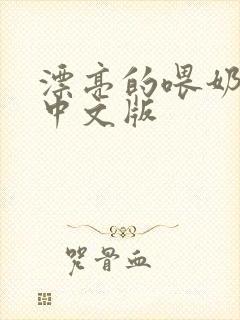 漂亮的喂奶
中文版
咒骨血